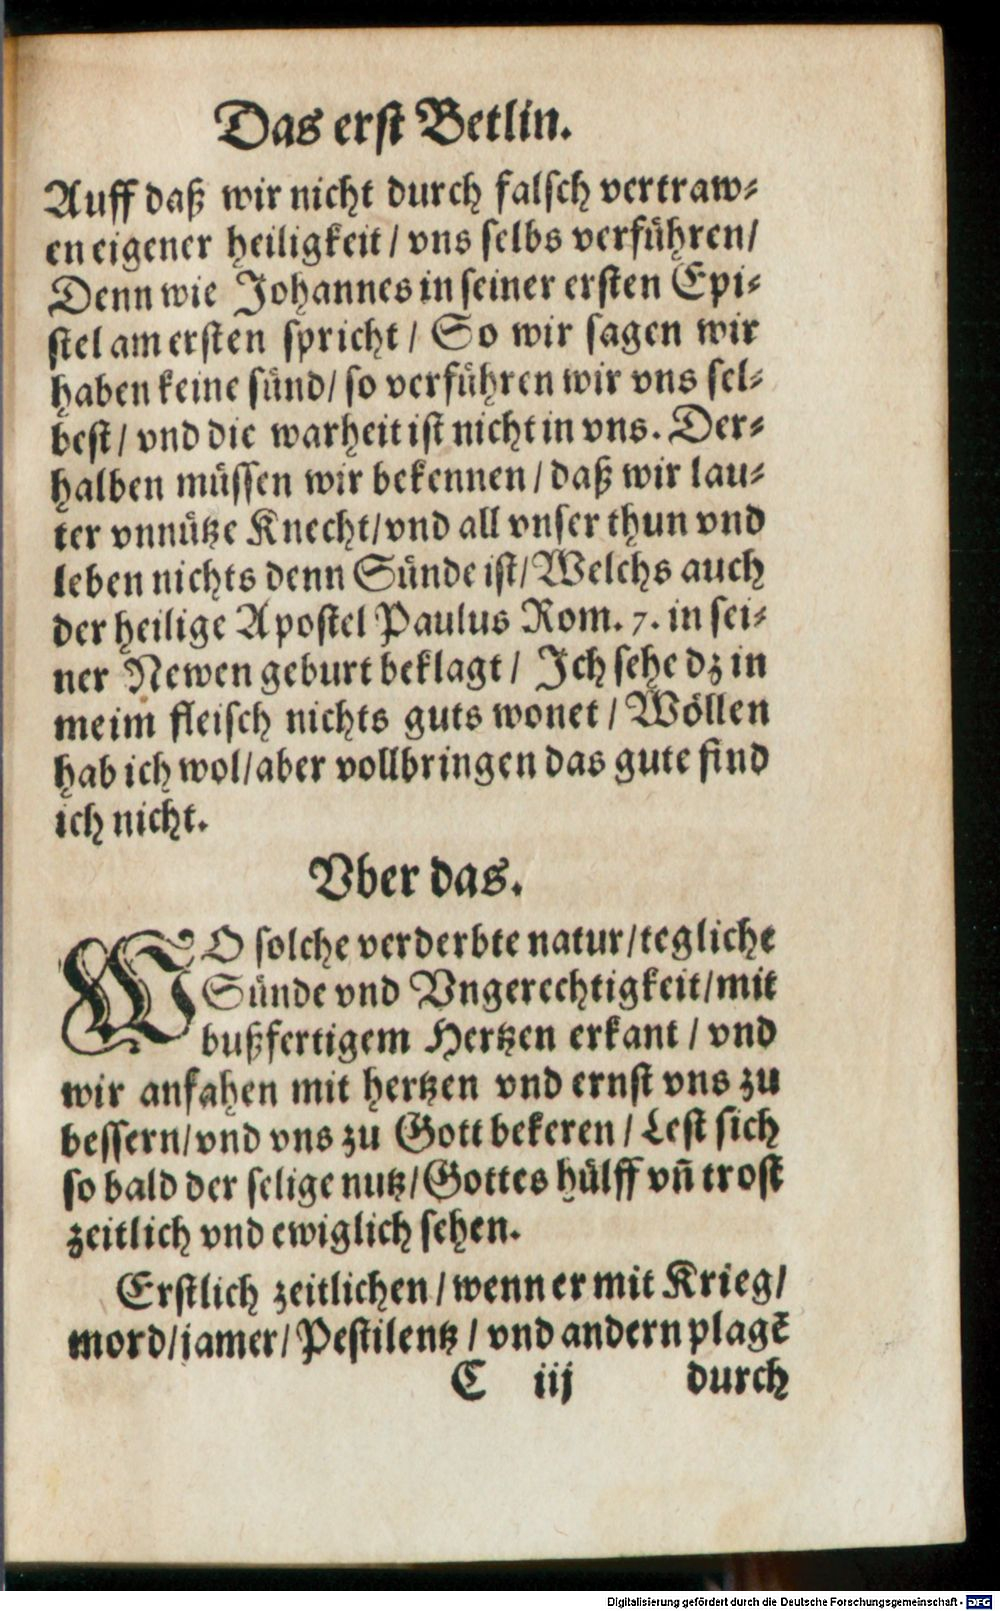 Das erst Betlin.
Auff daß wir nicht durch falsch vertraw⸗
en eigener heiligkeit / vns selbs verführen/
Denn wie Johannes in seiner ersten Epi⸗
stel am ersten spricht / So wir sagen wir
haben keine sünd/ so verführen wir vns sel⸗
best / vnd die warheit ist nicht in vns. Der⸗
halben müssen wir bekennen / daß wir lau⸗
ter vnnütze Knecht/vnd all vnser thun vnd
leben nichts denn Sünde ist/ Welchs auch
der heilige Apostel Paulus Rom. 7. in sei⸗
ner Newen geburt beklagt / Ich sehe dz in
meim fleisch nichts guts wonet / Wöllen
hab ich wol/aber vollbringen das gute find
ich nicht.
Vber das.
WO solche verderbte natur/tegliche
Sünde vnd Vngerechtigkeit/mit
bußfertigem Hertzen erkant / vnd
wir anfahen mit hertzen vnd ernst vns zu
bessern/vnd vns zu Gott bekeren / Lest sich
so bald der selige nutz/Gottes hülff vn̄ trost
zeitlich vnd ewiglich sehen.
Erstlich zeitlichen / wenn er mit Krieg/
mord/jamer/ Pestilentz / vnd andern plagē
C iij durch
Digitalisierung gefördert durch die Deutsche Forschungsgemeinschaft - DFG